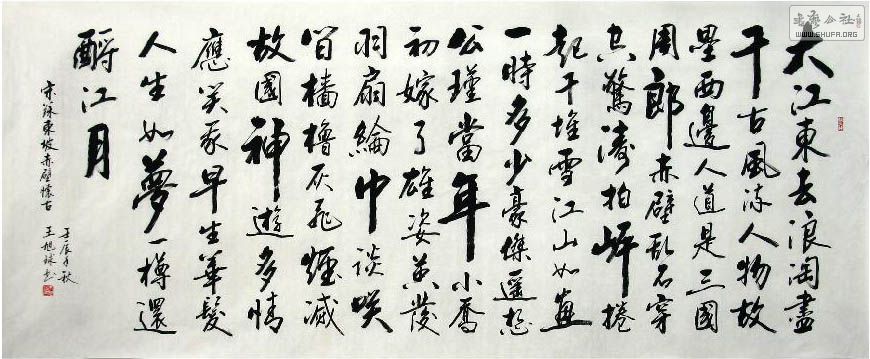 大江東去浪淘盡
千古風流人物故
壘西邊人道是三國
周郎赤壁亂石穿
空驚濤拍岸捲
起千堆雪江山如畫
一時多少豪傑遥想
公瑾當年小喬
初嫁了雄姿英發
羽扇綸巾談笑
間檣櫓灰飛煙滅
故國神遊多情
應笑我早生華髮
人生如夢一樽還
酹江月
宋蘇東坡赤壁懷古
壬辰年秋
王旭球书
公社
WWW.SHUFA.ORG